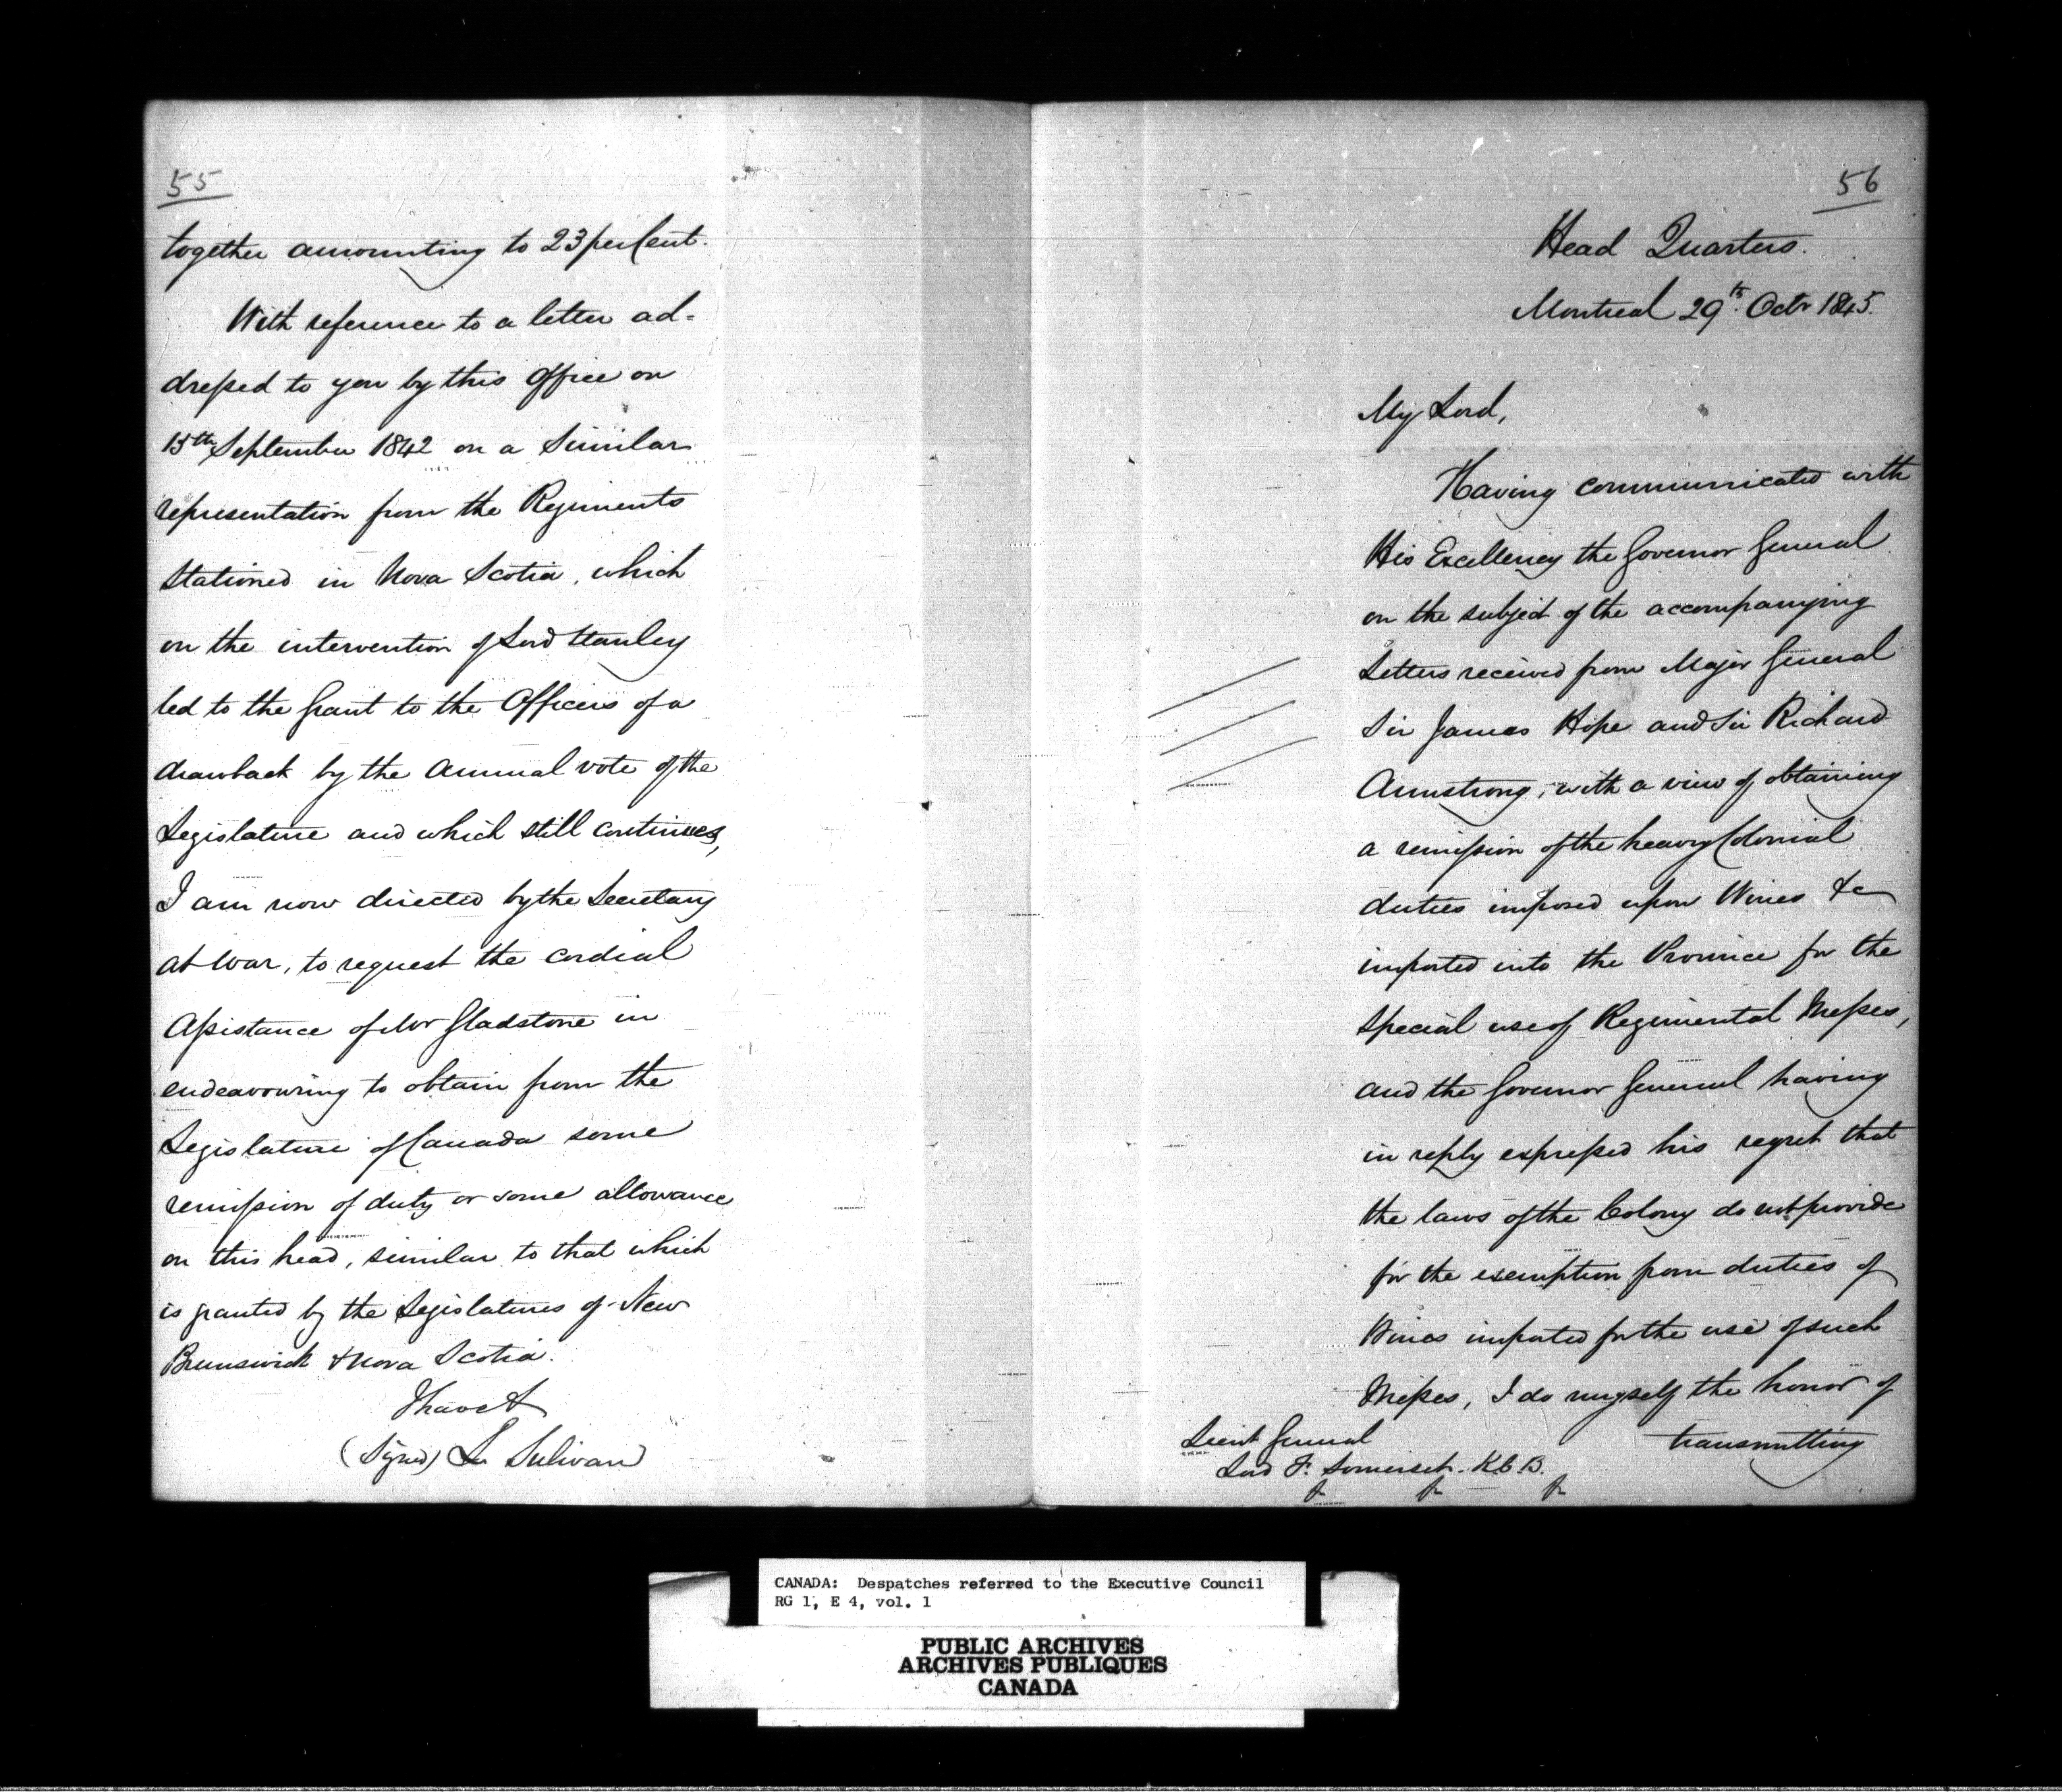 55
together amounting to 23 per Cent.
With reference to a letter ad-
dressed to you by this Office on
15th September 1842 on a Similar
representation from the Regiments
stationed in Nova Scotia, which
on the intervention of Lord Stanley
led to the Grant to the Officers of a
drawback by the Annual vote of the
Legislature and which still continues,
I am now directed by the Secretary
at War, to request the cordial
Assistance of Mr Gladstone in
endeavouring to obtain from the
Legislature of Canada some
remission of duty or some allowance
on this head, similar to that which
is granted by the Legislatures of New
Brunswick & Nova Scotia.
I have &
(Signed) L Sulivan
56
Head Quarters.
Montreal 29th Octr 1845.
My Lord,
Having communicated with
His Excellency the Governor General
on the subject of the accompanying
Letters received from Major General
Sir James Hope and Sir Richard
Armstrong, with a view of obtaining
a remission of the heavy Colonial
duties imposed upon Wines &c
imported into the Province for the
special use of Regimental Messes,
and the Governor General having
in reply expressed his regret that
the laws of the Colony do not provide
for the exemption from duties of
Wines imported for the use of such
Messes, I do myself the honor of
transmitting
Lieut General
Lord F. Somerset. K.C.B.
CANADA: Despatches referred to the Executive Council
RG 1, E 4, vol. 1
PUBLIC ARCHIVES
ARCHIVES PUBLIQUES
CANADA